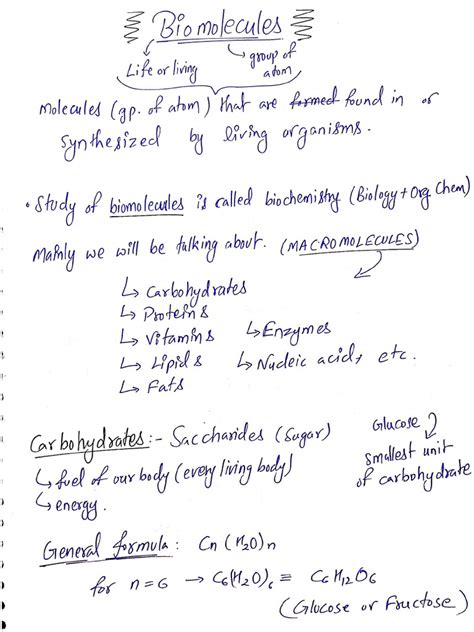 Biomolecules
Life or living
group of
atom
Molecules (gp. of atom) that are formed found in or
synthesized by living organisms.
• Study of biomolecules is called biochemistry (Biology + Org. Chem)
Mainly we will be talking about. (MACROMOLECULES)
↳ Carbohydrates
↳ Proteins
↳ Vitamins ↳ Enzymes
↳ Lipids ↳ Nucleic acid, etc.
↳ Fats
Carbohydrates:- Saccharides (Sugar)
↳ fuel of our body (every living body)
↳ energy.
Glucose
smallest unit
of carbohydrate
General formula: Cn(H2O)n
for n=6 → C6(H2O)6 ≡ C6H12O6
(Glucose or Fructose)